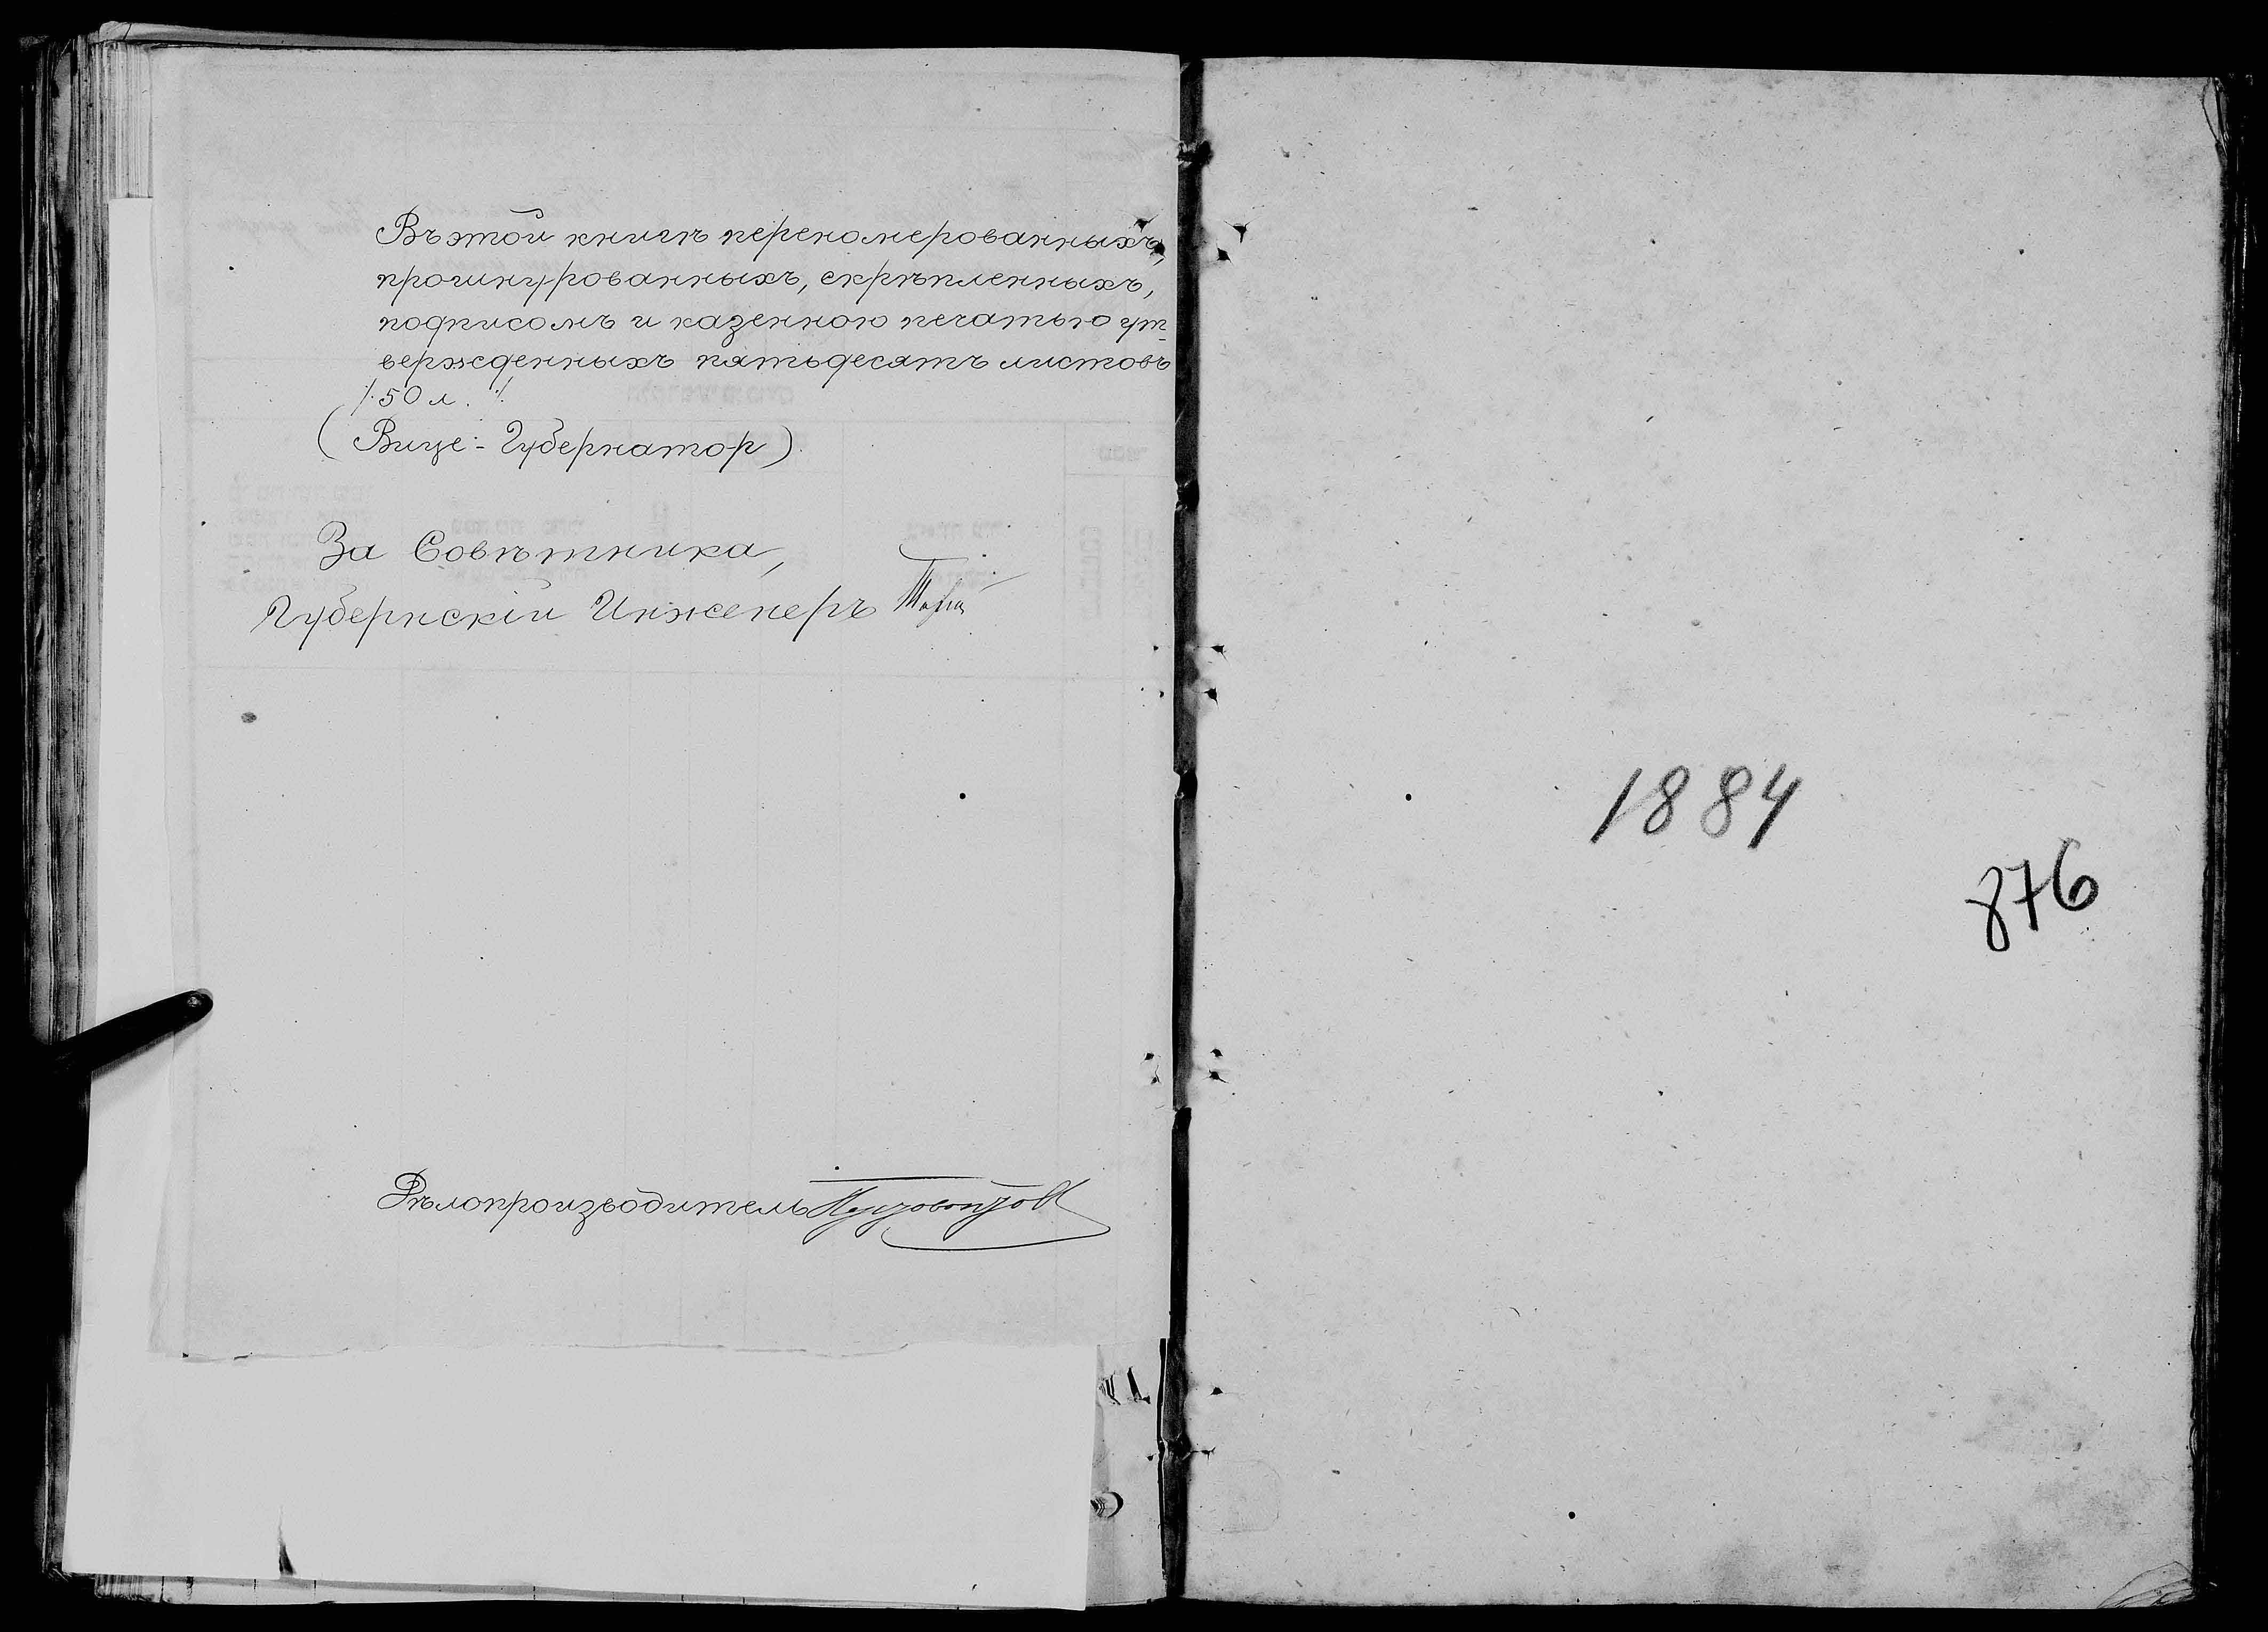 Въ этой книгѣ переномерованныхъ,
прошнурованныхъ, скрѣпленныхъ,
подписомъ и казенною печатью ут-
вержденныхъ пятьдесятъ листовъ
/.50 л. /.
(Вице-Губернатор)
За Совѣтника,
Губернскій Инженеръ
Дѣлопроизводитель
1884
876